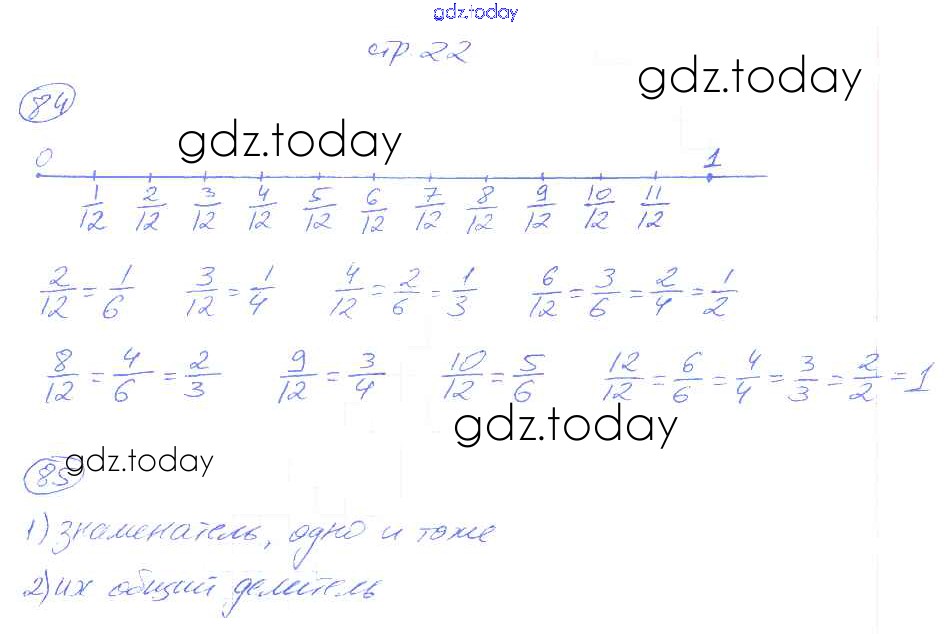 gdz.today
стр. 22
gdz.today
84
gdz.today
0 1
1/12 2/12 3/12 4/12 5/12 6/12 7/12 8/12 9/12 10/12 11/12
2/12 = 1/6 3/12 = 1/4 4/12 = 2/6 = 1/3 6/12 = 3/6 = 2/4 = 1/2
8/12 = 4/6 = 2/3 9/12 = 3/4 10/12 = 5/6 12/12 = 6/6 = 4/4 = 3/3 = 2/2 = 1
gdz.today
85 gdz.today
1) знаменатель, одно и тоже
2) их общий делитель